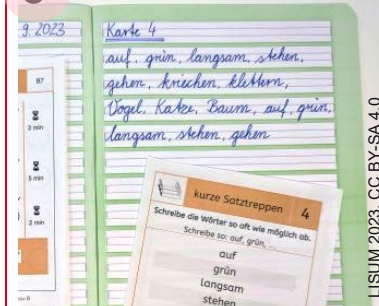 9. 2023
Karte 4
auf, grün, langsam, stehen,
gehen, kriechen, klettern,
Vogel, Katze, Baum, auf, grün,
langsam, stehen, gehen
B7
3 min
5 min
2 min
kurze Satztreppen 4
Schreibe die Wörter so oft wie möglich ab.
Schreibe so: auf, grün, ...
auf
grün
langsam
stehen
LISUM 2023, CC BY-SA 4.0